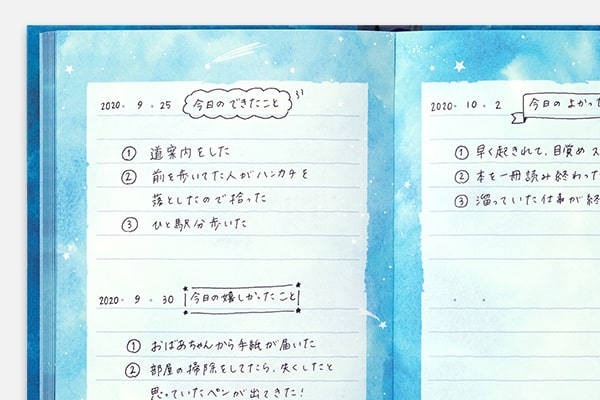 2020. 9. 25 今日のできたこと
① 道案内をした
② 前を歩いてた人がハンカチを
落としたので拾った
③ ひと駅分歩いた
2020. 9. 30 今日の嬉しかったこと
① おばあちゃんから手紙が届いた
② 部屋の掃除をしてたら、失くしたと
思っていたペンが出てきた!
2020. 10. 2 今日のよかった
① 早く起きれて、目覚めス
② 本を一冊読み終わった
③ 溜っていた仕事が終